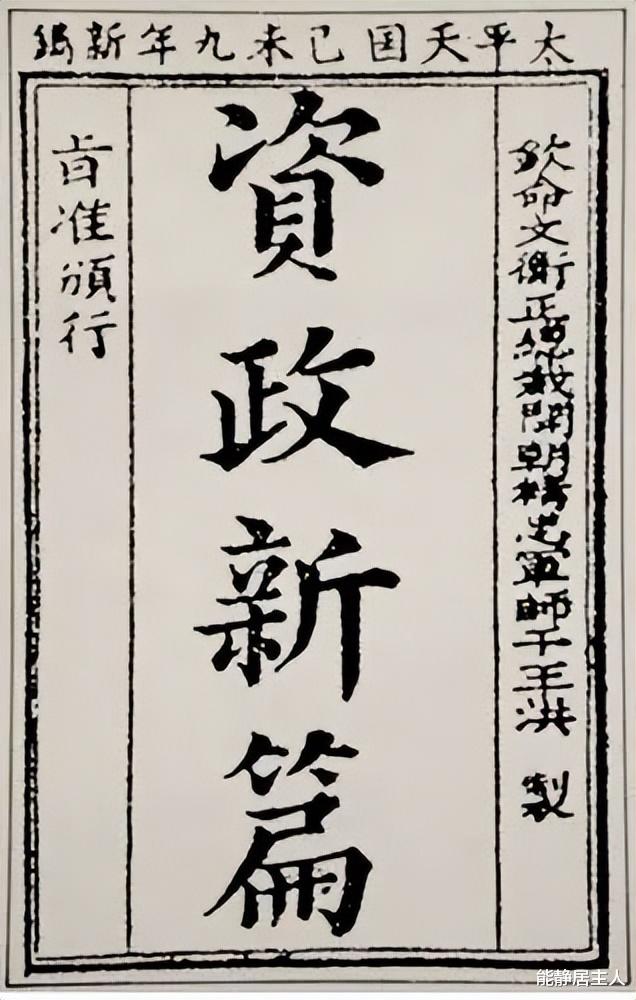 太平天囯己未九年新鐫
欽命文衡正總裁開朝精忠軍師干王洪 製
資政新篇
旨准頒行
能静居主人